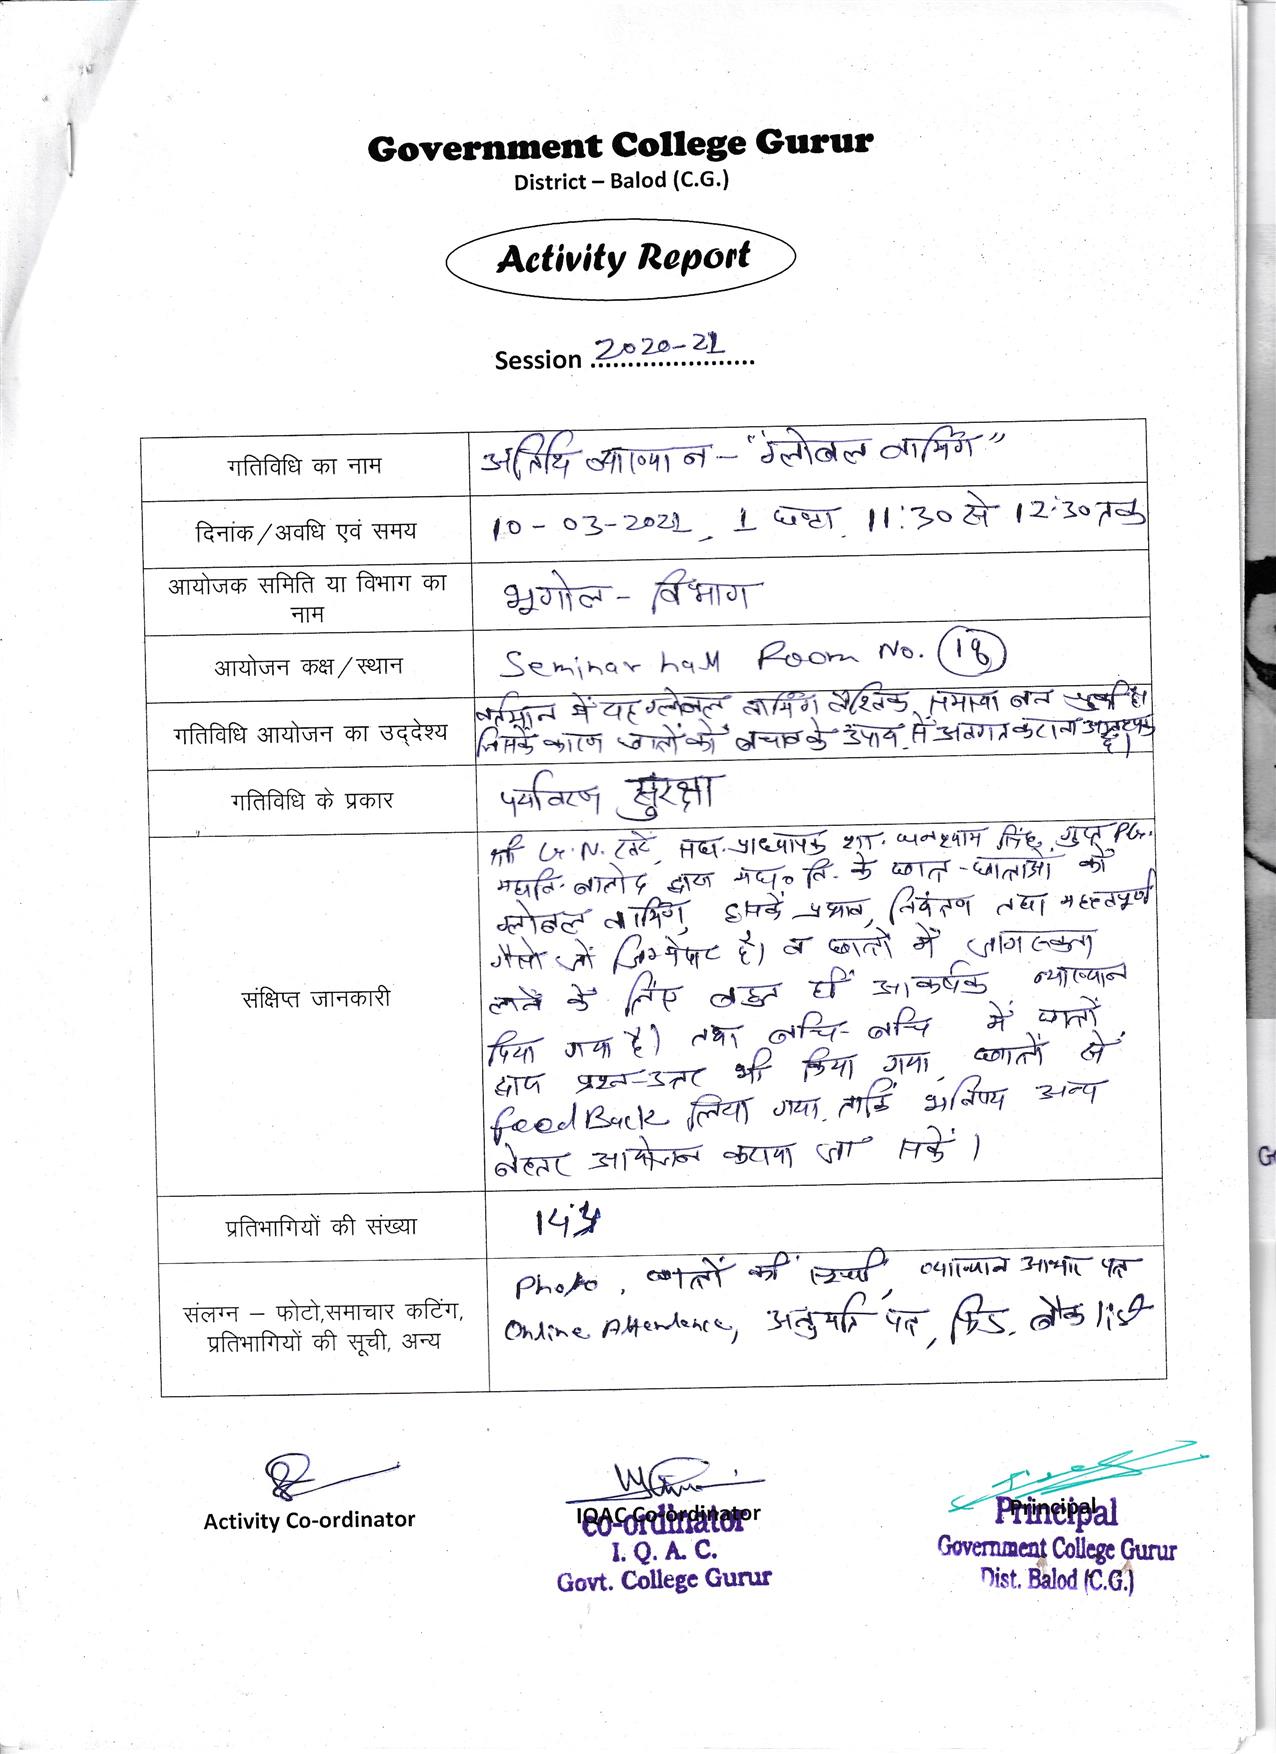 Government College Gurur
District – Balod (C.G.)
Activity Report
Session 2020-21
गतिविधि का नाम
अतिथि व्याख्यान - "ग्लोबल वार्मिंग"
दिनांक/अवधि एवं समय
10-03-2021, 1 घण्टा, 11:30 से 12:30 तक
आयोजक समिति या विभाग का
नाम
भूगोल - विभाग
आयोजन कक्ष/स्थान
Seminar hall Room No.
गतिविधि आयोजन का उद्देश्य
वर्तमान में यह ग्लोबल वार्मिंग वैश्विक समस्या बन चुकी है।
जिसके कारण छात्रों को बचाव के उपाय से अवगत कराना आवश्यक
है।
गतिविधि के प्रकार
पर्यावरण सुरक्षा
संक्षिप्त जानकारी
श्री G.N. सहा. प्राध्यापक शा. घनश्याम सिंह गुप्त PG.
महावि. बालोद द्वारा महा. वि. के छात्र-छात्राओं को
ग्लोबल वार्मिंग, इसके प्रभाव, नियंत्रण तथा महत्वपूर्ण
गैसों जो जिम्मेदार है। व छात्रों में जागरूकता
लाने के लिए बहुत ही आकर्षक व्याख्यान
दिया गया है। तथा बीच-बीच में छात्रों
द्वारा प्रश्न-उत्तर भी किया गया, छात्रों से
feedBack लिया गया, ताकि भविष्य अन्य
बेहतर आयोजन कराया जा सकें।
प्रतिभागियों की संख्या
संलग्न – फोटो,समाचार कटिंग,
प्रतिभागियों की सूची, अन्य
Photo, छात्रों की सूची, व्याख्यान आभार पत्र
Online Attendence, अनुमति पत्र, फिड. बैक list
Activity Co-ordinator
IQAC Co-ordinator
Co-ordinator
I. Q. A. C.
Govt. College Gurur
Principal
Principal
Government College Gurur
Dist. Balod (C.G.)